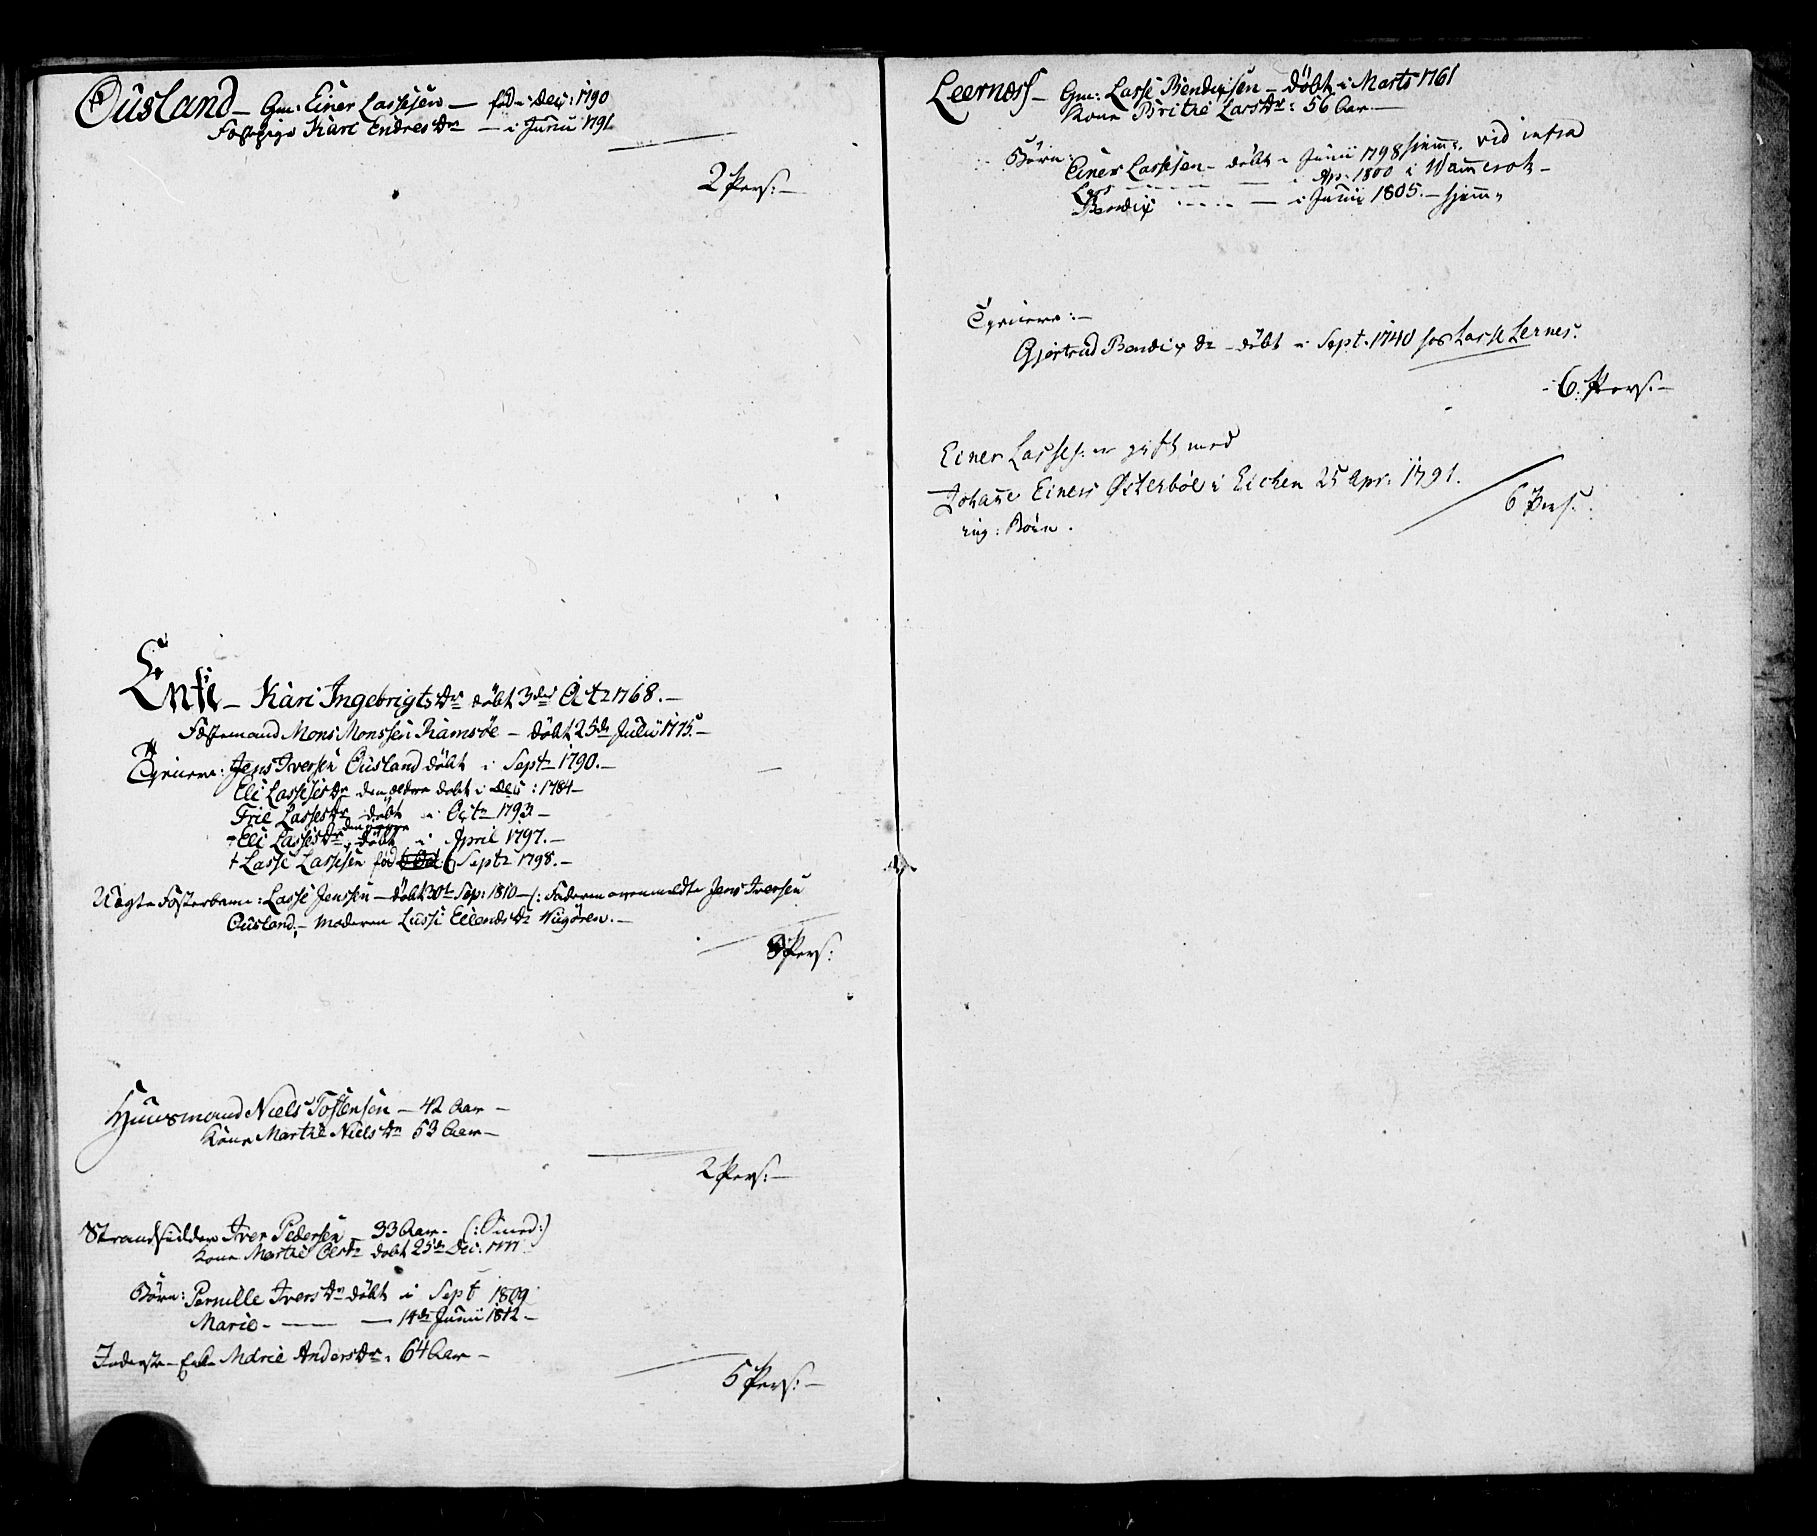 Ousland – Gm: Einer Lassesen — fød i Dec: 1790
Fæstepige Kari Endresdr — i Junii 1791
2 Pers: –
Enke – Kari Ingebrigtsdr døbt 3de Oct 1768. –
Fæstemand Mons Monssen Ramsøe – døbt 25de Julii 1775. –
Tyenere: Jens Iversen Ousland døbt i Septr 1790. –
Eli Lassesdr den ældre døbt i Dec: 1784 –
Lassesdr døbt i Octr 1793 –
Eli Lassesdr den yngre døbt i April 1797. –
† Lasse Lassesen fød 6 Septr 1798. –
Uægte Fosterbarn: Lasse Jenssen – døbt 30te Sep: 1810 – (: Faderen ovenmeldte Jens Iversen
Ousland, – Moderen Lussi Ellendsdr
8 Pers:
Huusmand Niels Tostensen – 42 Aar –
Kone Marthe Nielsdr 53 Aar –
2 Pers: –
Strandsidder Iver Pedersen – 33 Aar – (: Smed :)
Kone Marthe Olsdr døbt 25de Dec: 1777
Børn: Pernille Iversdr døbt i Sept 1809
Marie – —— — 14de Junii 1812 –
Inderste – Enke Marie Andersdr: 64 Aar –
5 Pers: –
Leernæss – Gm: Lasse Bendixsen – døbt i Marts 1761
Kone Brithe Larsdr: 56 Aar –
Børn: Einer Lassesen – døbt i Junii 1798 hjem: vid infra
Lars – – – – — i Apr. 1800 i
Bendix – – – – — i Junii 1805. – hjem:
Tyenere: –
Gjertrud Bendixdr – døbt i Sept. 1740 hos Lasse Lernes.
6 Pers: –
Einer Lasses: er gift med
Johanne Einers Østerbøe i Eichen 25 Apr. 1791.
ing: Børn.
6 Pers: